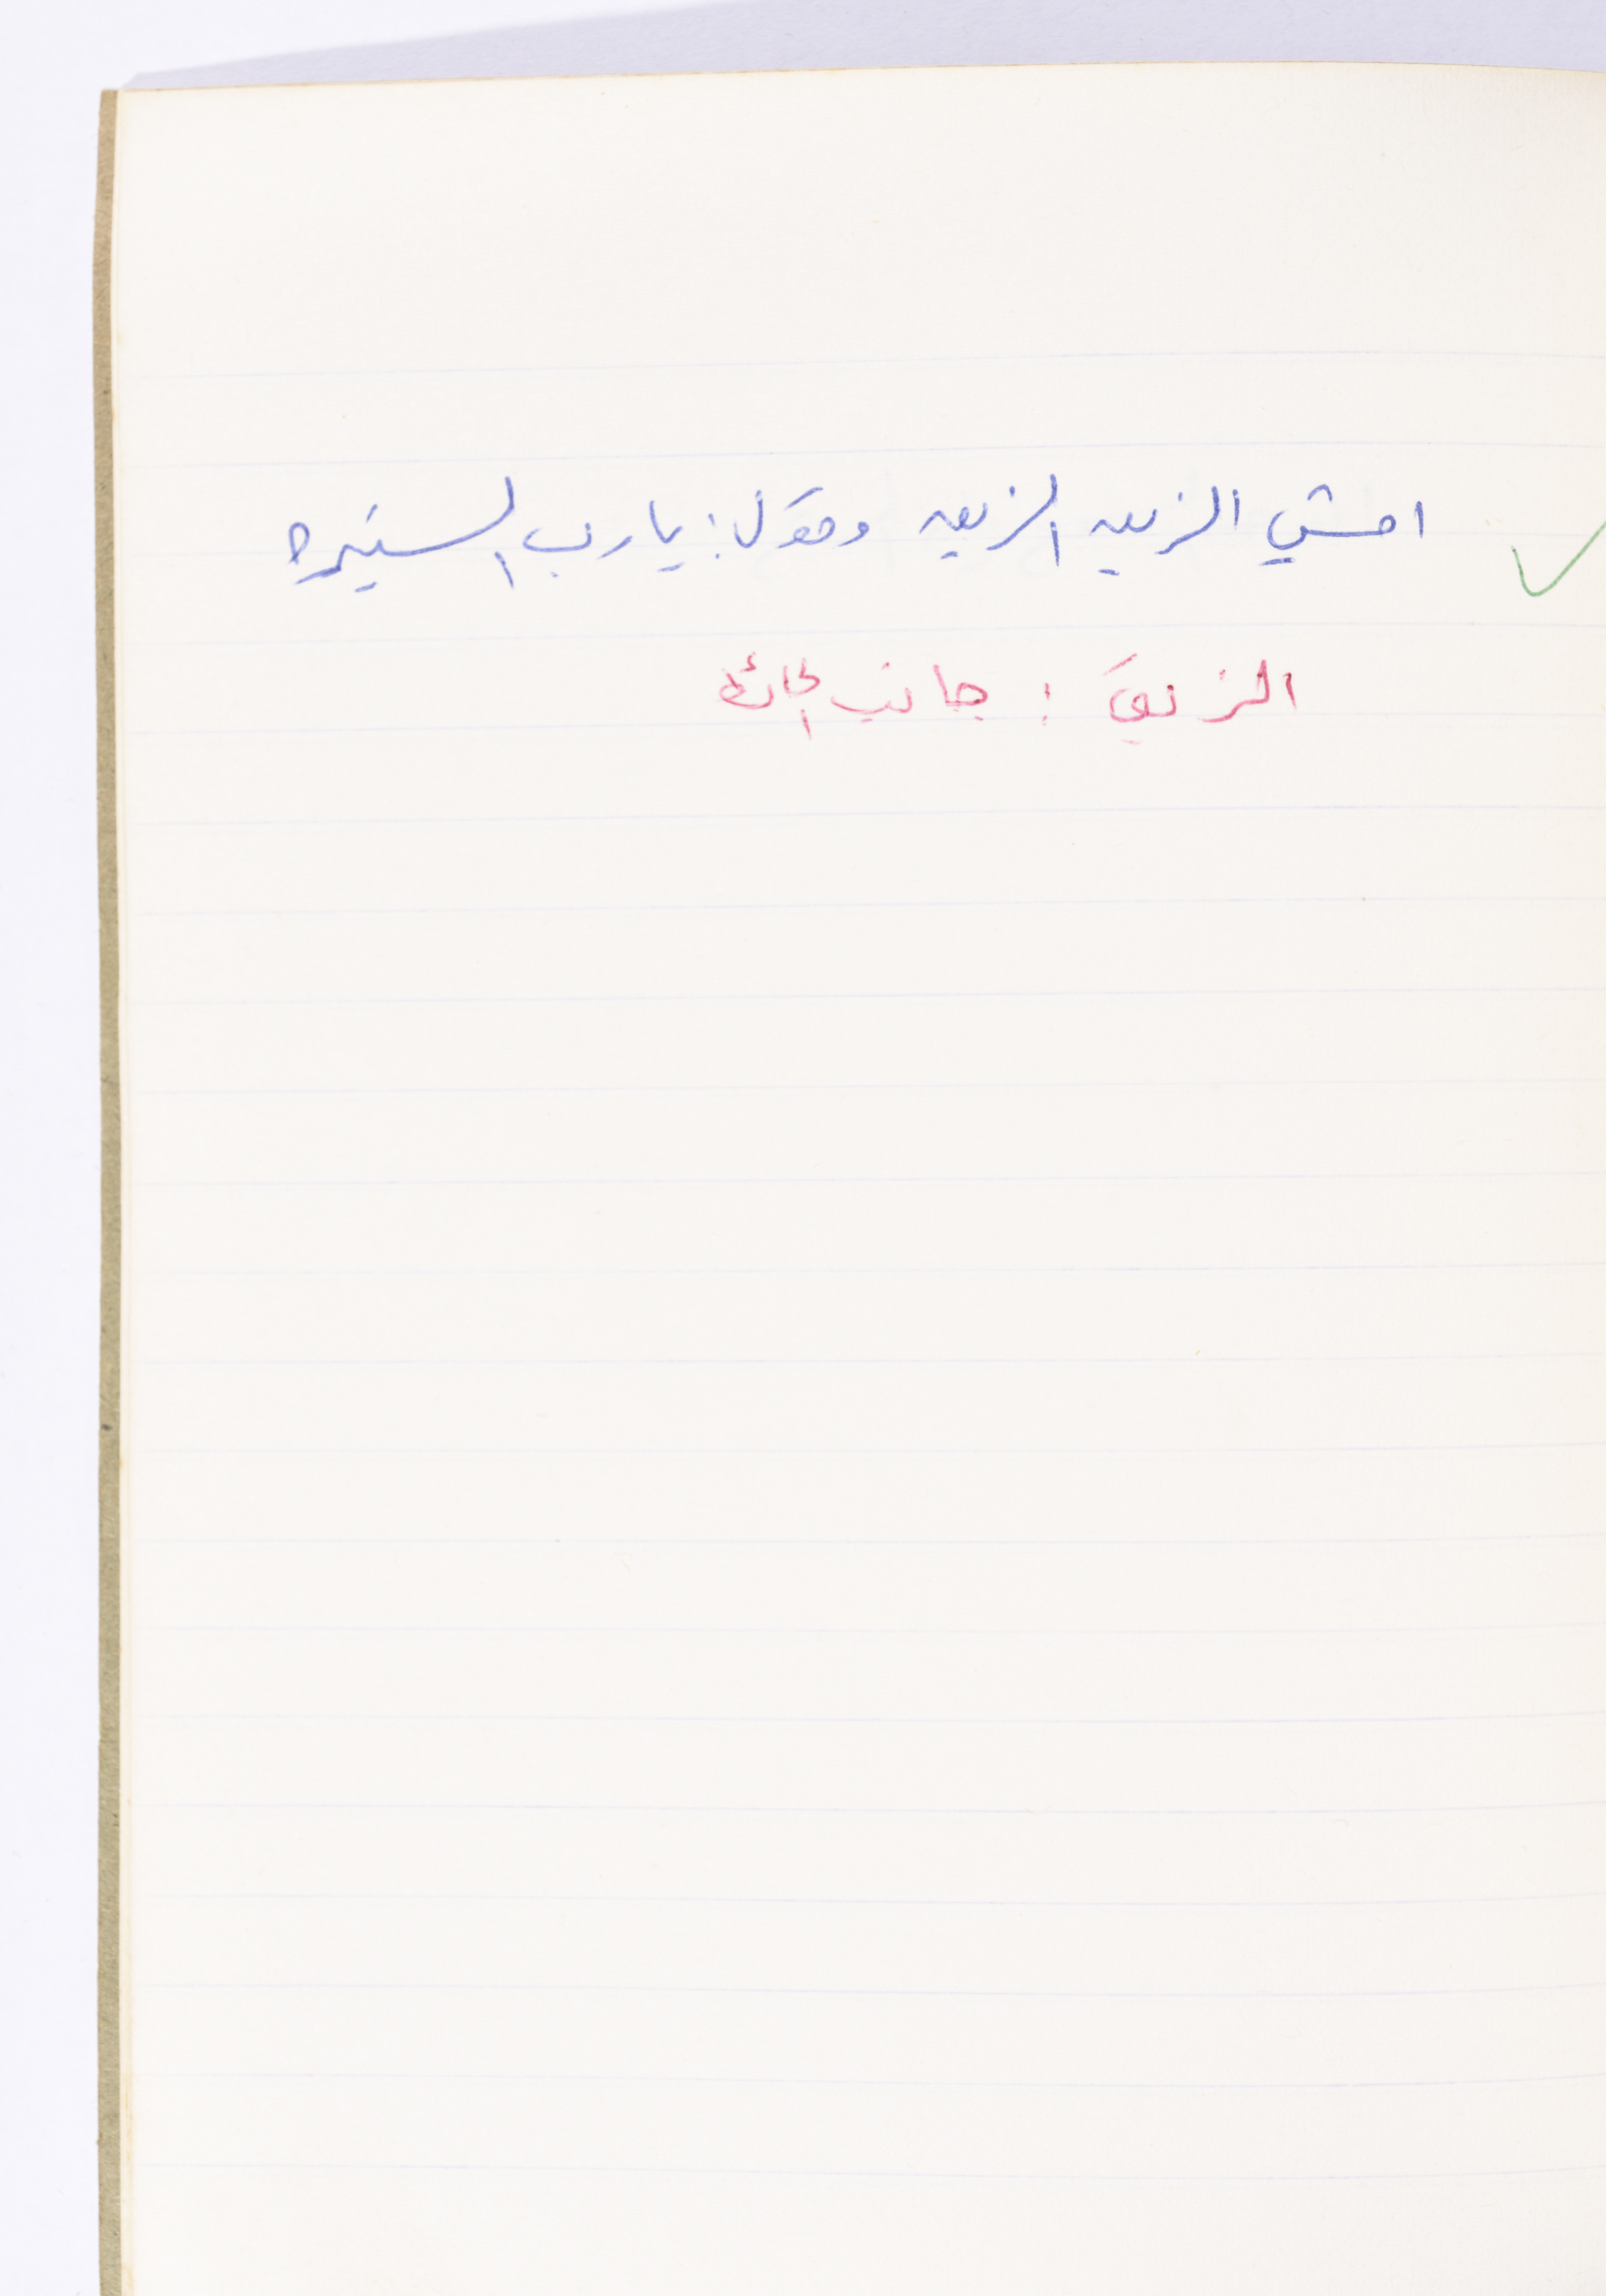 امشي الزيق الزيق وقول: يا رب السترة
الزيق : جانب الحائط